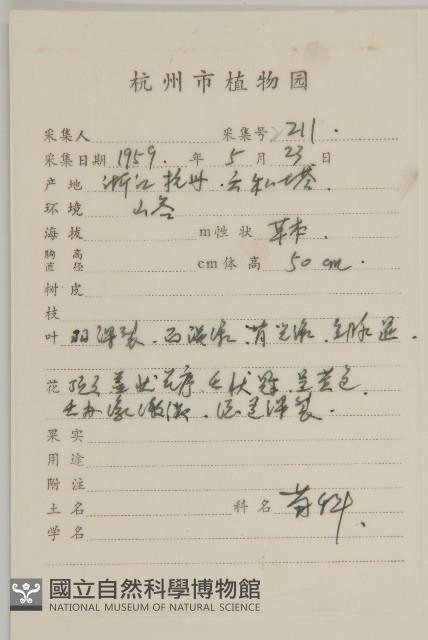 杭州市植物园
采集人 采集号 211.
采集日期 1959. 年 5 月 23 日
产地 浙江杭州.云私塔.
环境 山谷
海拔 m性状 草本.
胸高直径 cm体高 50 cm.
树皮
枝
叶 羽深裂.面深绿.背光绿.
花 顶 盖状花序. 状 .呈黄色.
果实
用途
附注
土名 科名 菊科.
学名
國立自然科學博物館
NATIONAL MUSEUM OF NATURAL SCIENCE